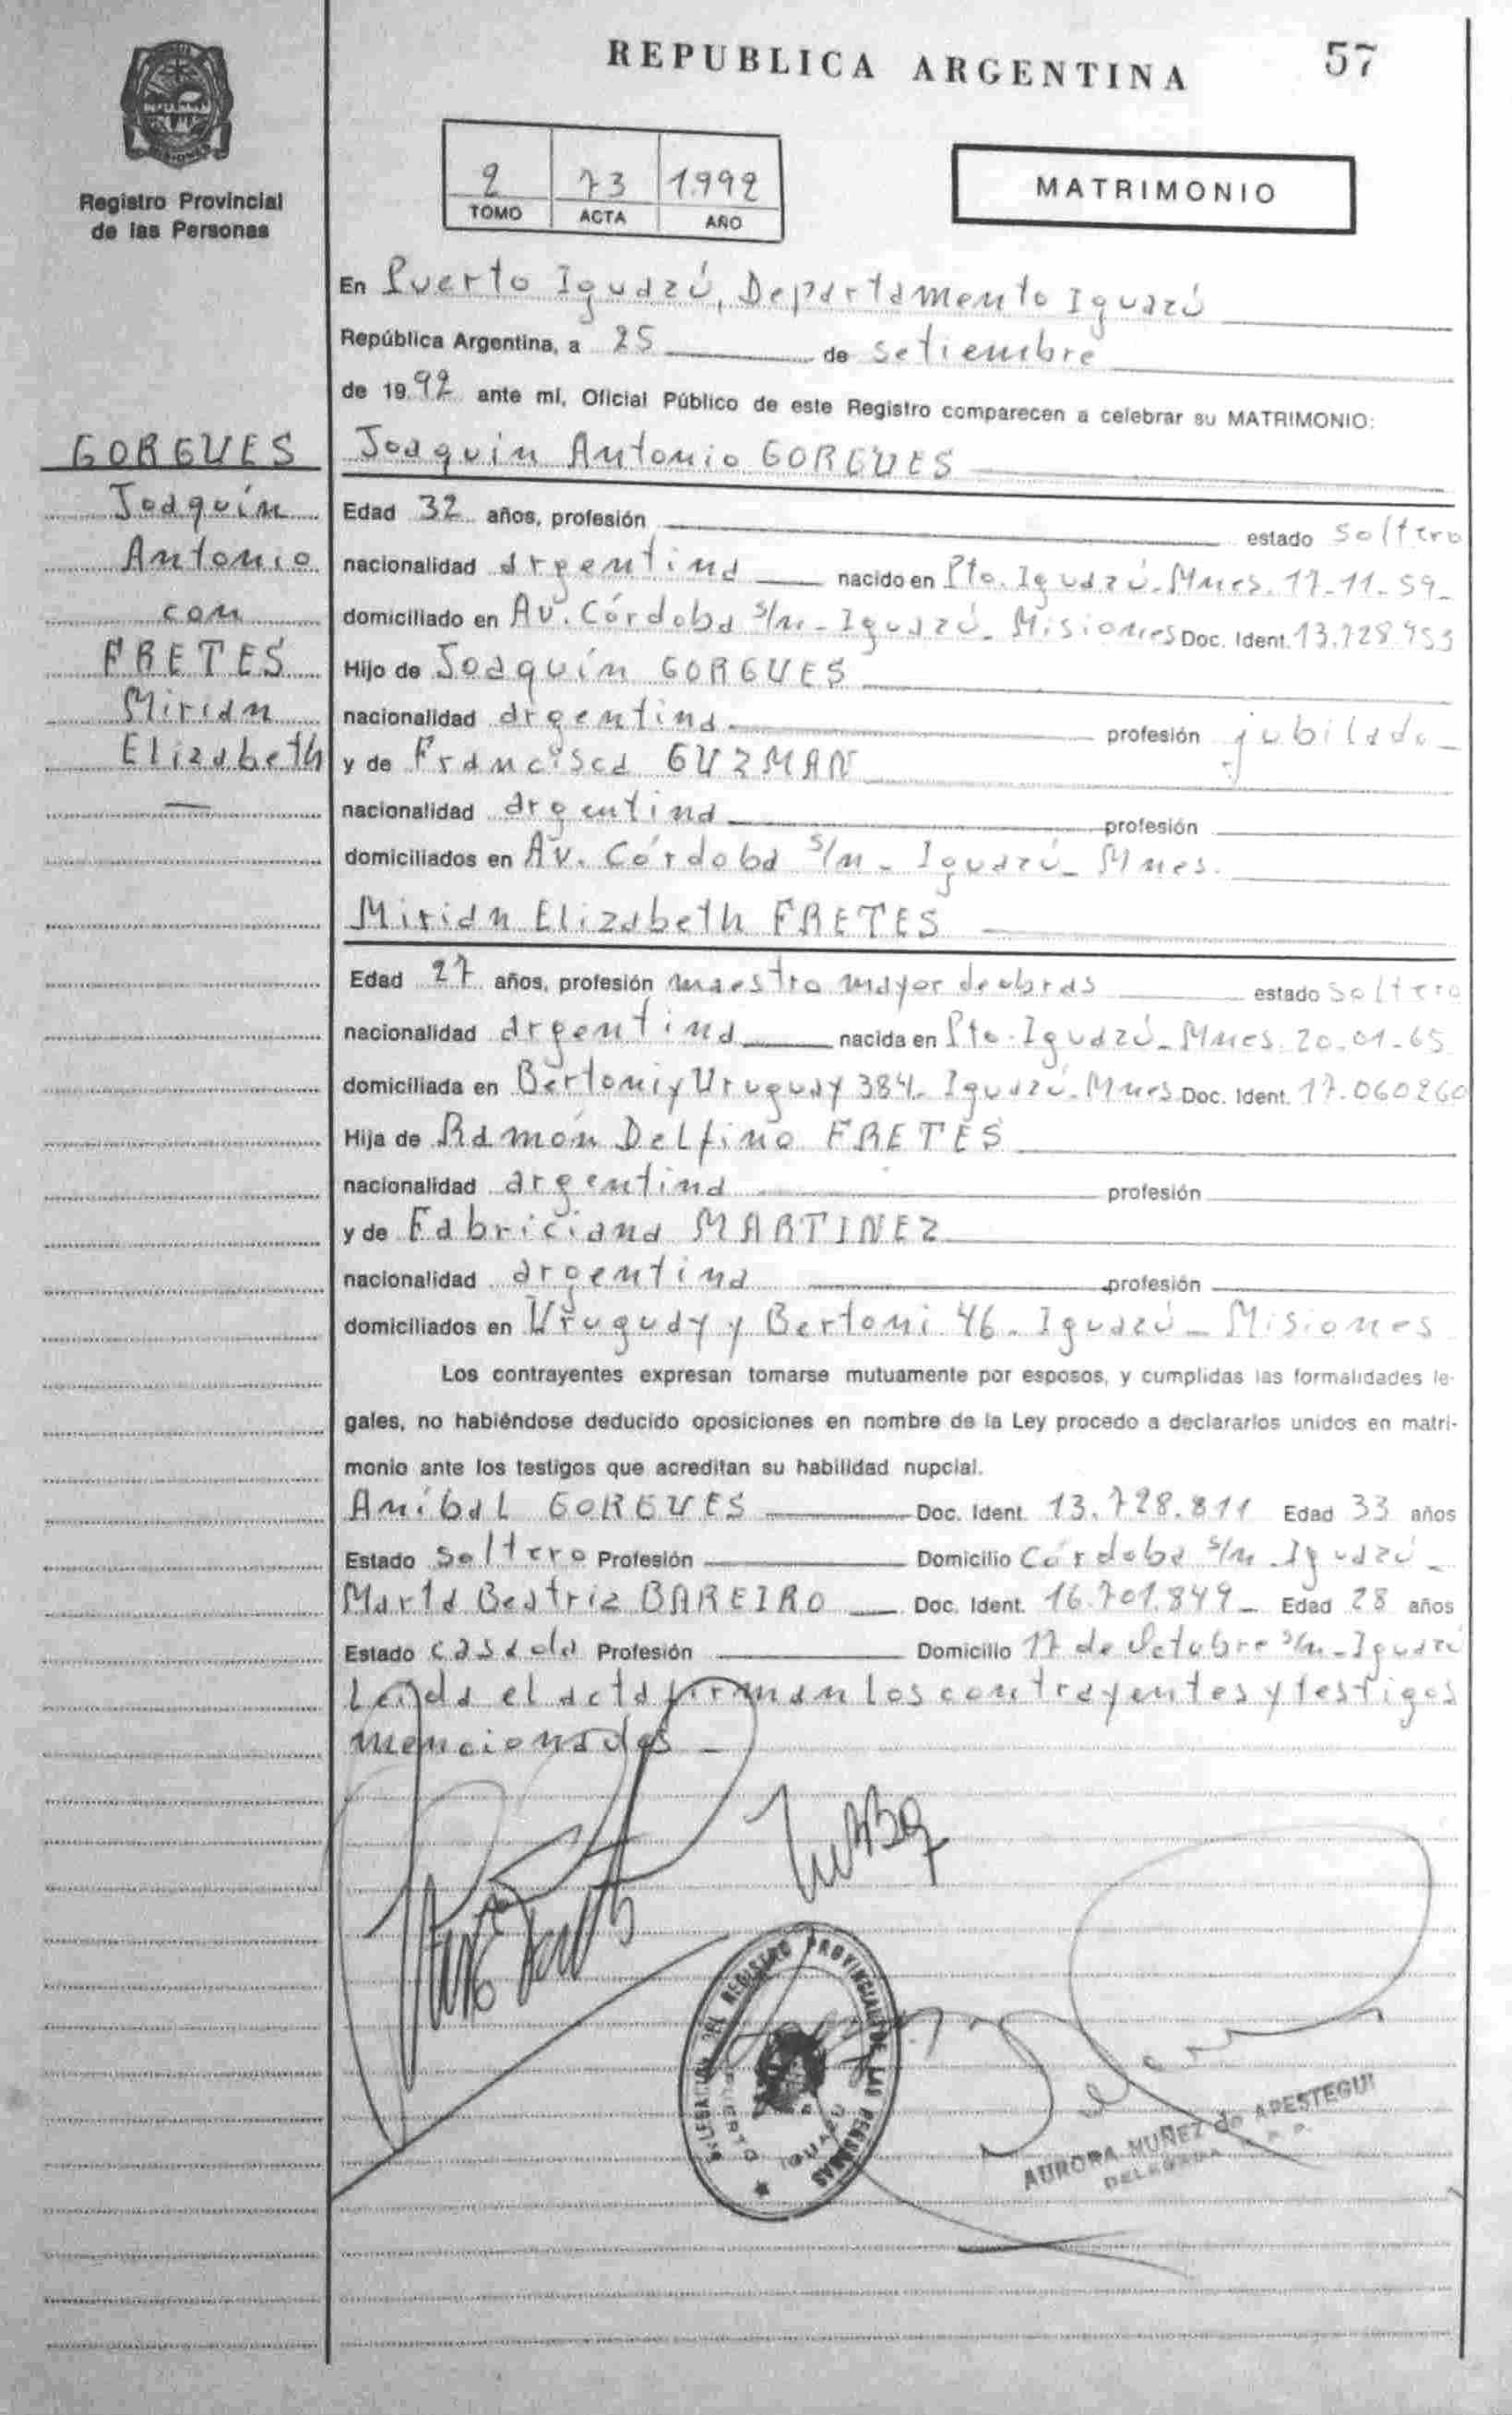 REPUBLICA ARGENTINA
57
MISIONES
Registro Provincial
de las Personas
2 73 1.992
TOMO ACTA AÑO
MATRIMONIO
En Puerto Iguazú, Departamento Iguazú
República Argentina, a 25 de setiembre
de 1992 ante mí, Oficial Público de este Registro comparecen a celebrar su MATRIMONIO:
GORGUES
Joaquín
Antonio
con
FRETES
Mirian
Elizabeth
Joaquin Antonio GORGUES
Edad 32 años, profesión estado soltero
nacionalidad argentina nacido en Pto. Iguazú-Mnes. 17-11-59-
domiciliado en Av. Córdoba s/n - Iguazú - Misiones Doc. Ident. 13.728.953
Hijo de Joaquín GORGUES
nacionalidad argentina profesión jubilado
y de Francisca GUZMAN
nacionalidad argentina profesión
domiciliados en Av. Córdoba s/n - Iguazú - Mnes.
Mirian Elizabeth FRETES
Edad 27 años, profesión maestro mayor de obras estado soltero
nacionalidad argentina nacida en Pto. Iguazú - Mnes. 20-01-65
domiciliada en Bertoni y Uruguay 384 - Iguazú - Mnes Doc. Ident. 17.060260
Hija de Ramón Delfino FRETES
nacionalidad argentina profesión
y de Fabriciana MARTINEZ
nacionalidad argentina profesión
domiciliados en Uruguay y Bertoni 46 - Iguazú - Misiones
Los contrayentes expresan tomarse mutuamente por esposos, y cumplidas las formalidades le-
gales, no habiéndose deducido oposiciones en nombre de la Ley procedo a declararlos unidos en matri-
monio ante los testigos que acreditan su habilidad nupcial.
Aníbal GORGUES Doc. Ident. 13.728.811 Edad 33 años
Estado soltero Profesión Domicilio Córdoba s/n - Iguazú -
Marta Beatriz BAREIRO Doc. Ident. 16.701.849 - Edad 28 años
Estado casada Profesión Domicilio 17 de Octubre s/n - Iguazú
Leída el acta firman los contrayentes y testigos
mencionados -
DELEGACION DEL REGISTRO PROVINCIAL DE LAS PERSONAS
PUERTO IGUAZU
AURORA MUÑEZ de APESTEGUI